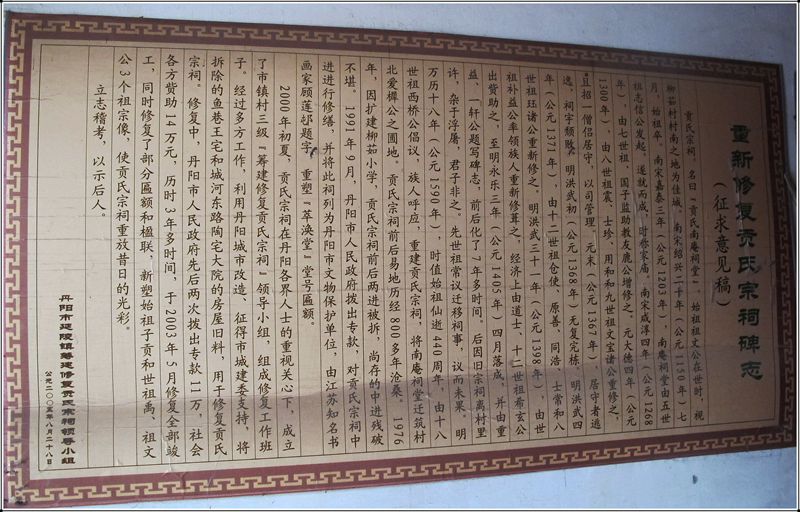 重新修复贡氏宗祠碑志
（征求意见稿）
贡氏宗祠，名曰『贡氏南庵祠堂』，始祖祖文公在世时，视
柳茹村村南之地为佳城，南宋绍兴二十年（公元1150年）七
月 始祖卒，南宋嘉泰三年（公元1203年），南庵祠堂由五世
祖志信公发起，遂就而成，时称家庙。南宋咸淳四年（公元1268
年），由七世祖、国子监助教友鹿公增修之。元大德四年（公元
1300年），由八世祖震、士珍、用和和九世祖文宝诸公重修之，
且招一僧侣居守，以司管理。元末（公元1367年），居守者逃
逸，祠宇颓败。明洪武初（公元1368年）无复完栋。明洪武四
年（公元1371年），由十二世祖仓使、原善、同浩、士常和八
世祖珏诸公重新修之。明洪武三十一年（公元1398年），由世
祖补益公率领族人重新修葺之，经济上由道士、十二世祖希玄公
出赞助之，至明永乐三年（公元1405年）四月落成，并由重
益、一轩公题写碑志，前后化了7年多时间。后因旧宗祠离村里
许，杂子浮屠，君子非之。先世祖常议迁移祠事，议而未果。明
万历十八年（公元1590年），时值始祖仙逝440周年，由十八
世祖西桥公倡议，族人呼应，重建贡氏宗祠，将南庵祠堂迁筑村
北爱樨公之圃地。贡氏宗祠前后易地历经800多年沧桑。1976
年，因扩建柳茹小学，贡氏宗祠前后两进被拆，尚存的中进残破
不堪。1991年9月，丹阳市人民政府拨出专款，对贡氏宗祠中
进进行修缮，并将此祠列为丹阳市文物保护单位，由江苏知名书
画家顾莲邨题字，重塑『萃涣堂』堂号匾额。
2000年初夏，贡氏宗祠在丹阳各界人士的重视关心下，成立
了市镇村三级『筹建修复贡氏宗祠』领导小组，组成修复工作班
子。经过多方工作，利用丹阳城市改造、征得市城建委支持，将
拆除的鱼巷王宅和城河东路陶宅大院的房屋旧料，用于修复贡氏
宗祠。修复中，丹阳市人民政府先后两次拨出专款11万，社会
各方赞助14万元，历时3年多时间，于2003年5月修复全部竣
工，同时修复了部分匾额和楹联，新塑始祖子贡和世祖禹、祖文
公3个祖宗像，使贡氏宗祠重放昔日的光彩。
立志稽考，以示后人。
丹阳市延陵镇筹建修复贡氏宗祠领导小组
公元二〇〇五年八月二十八日